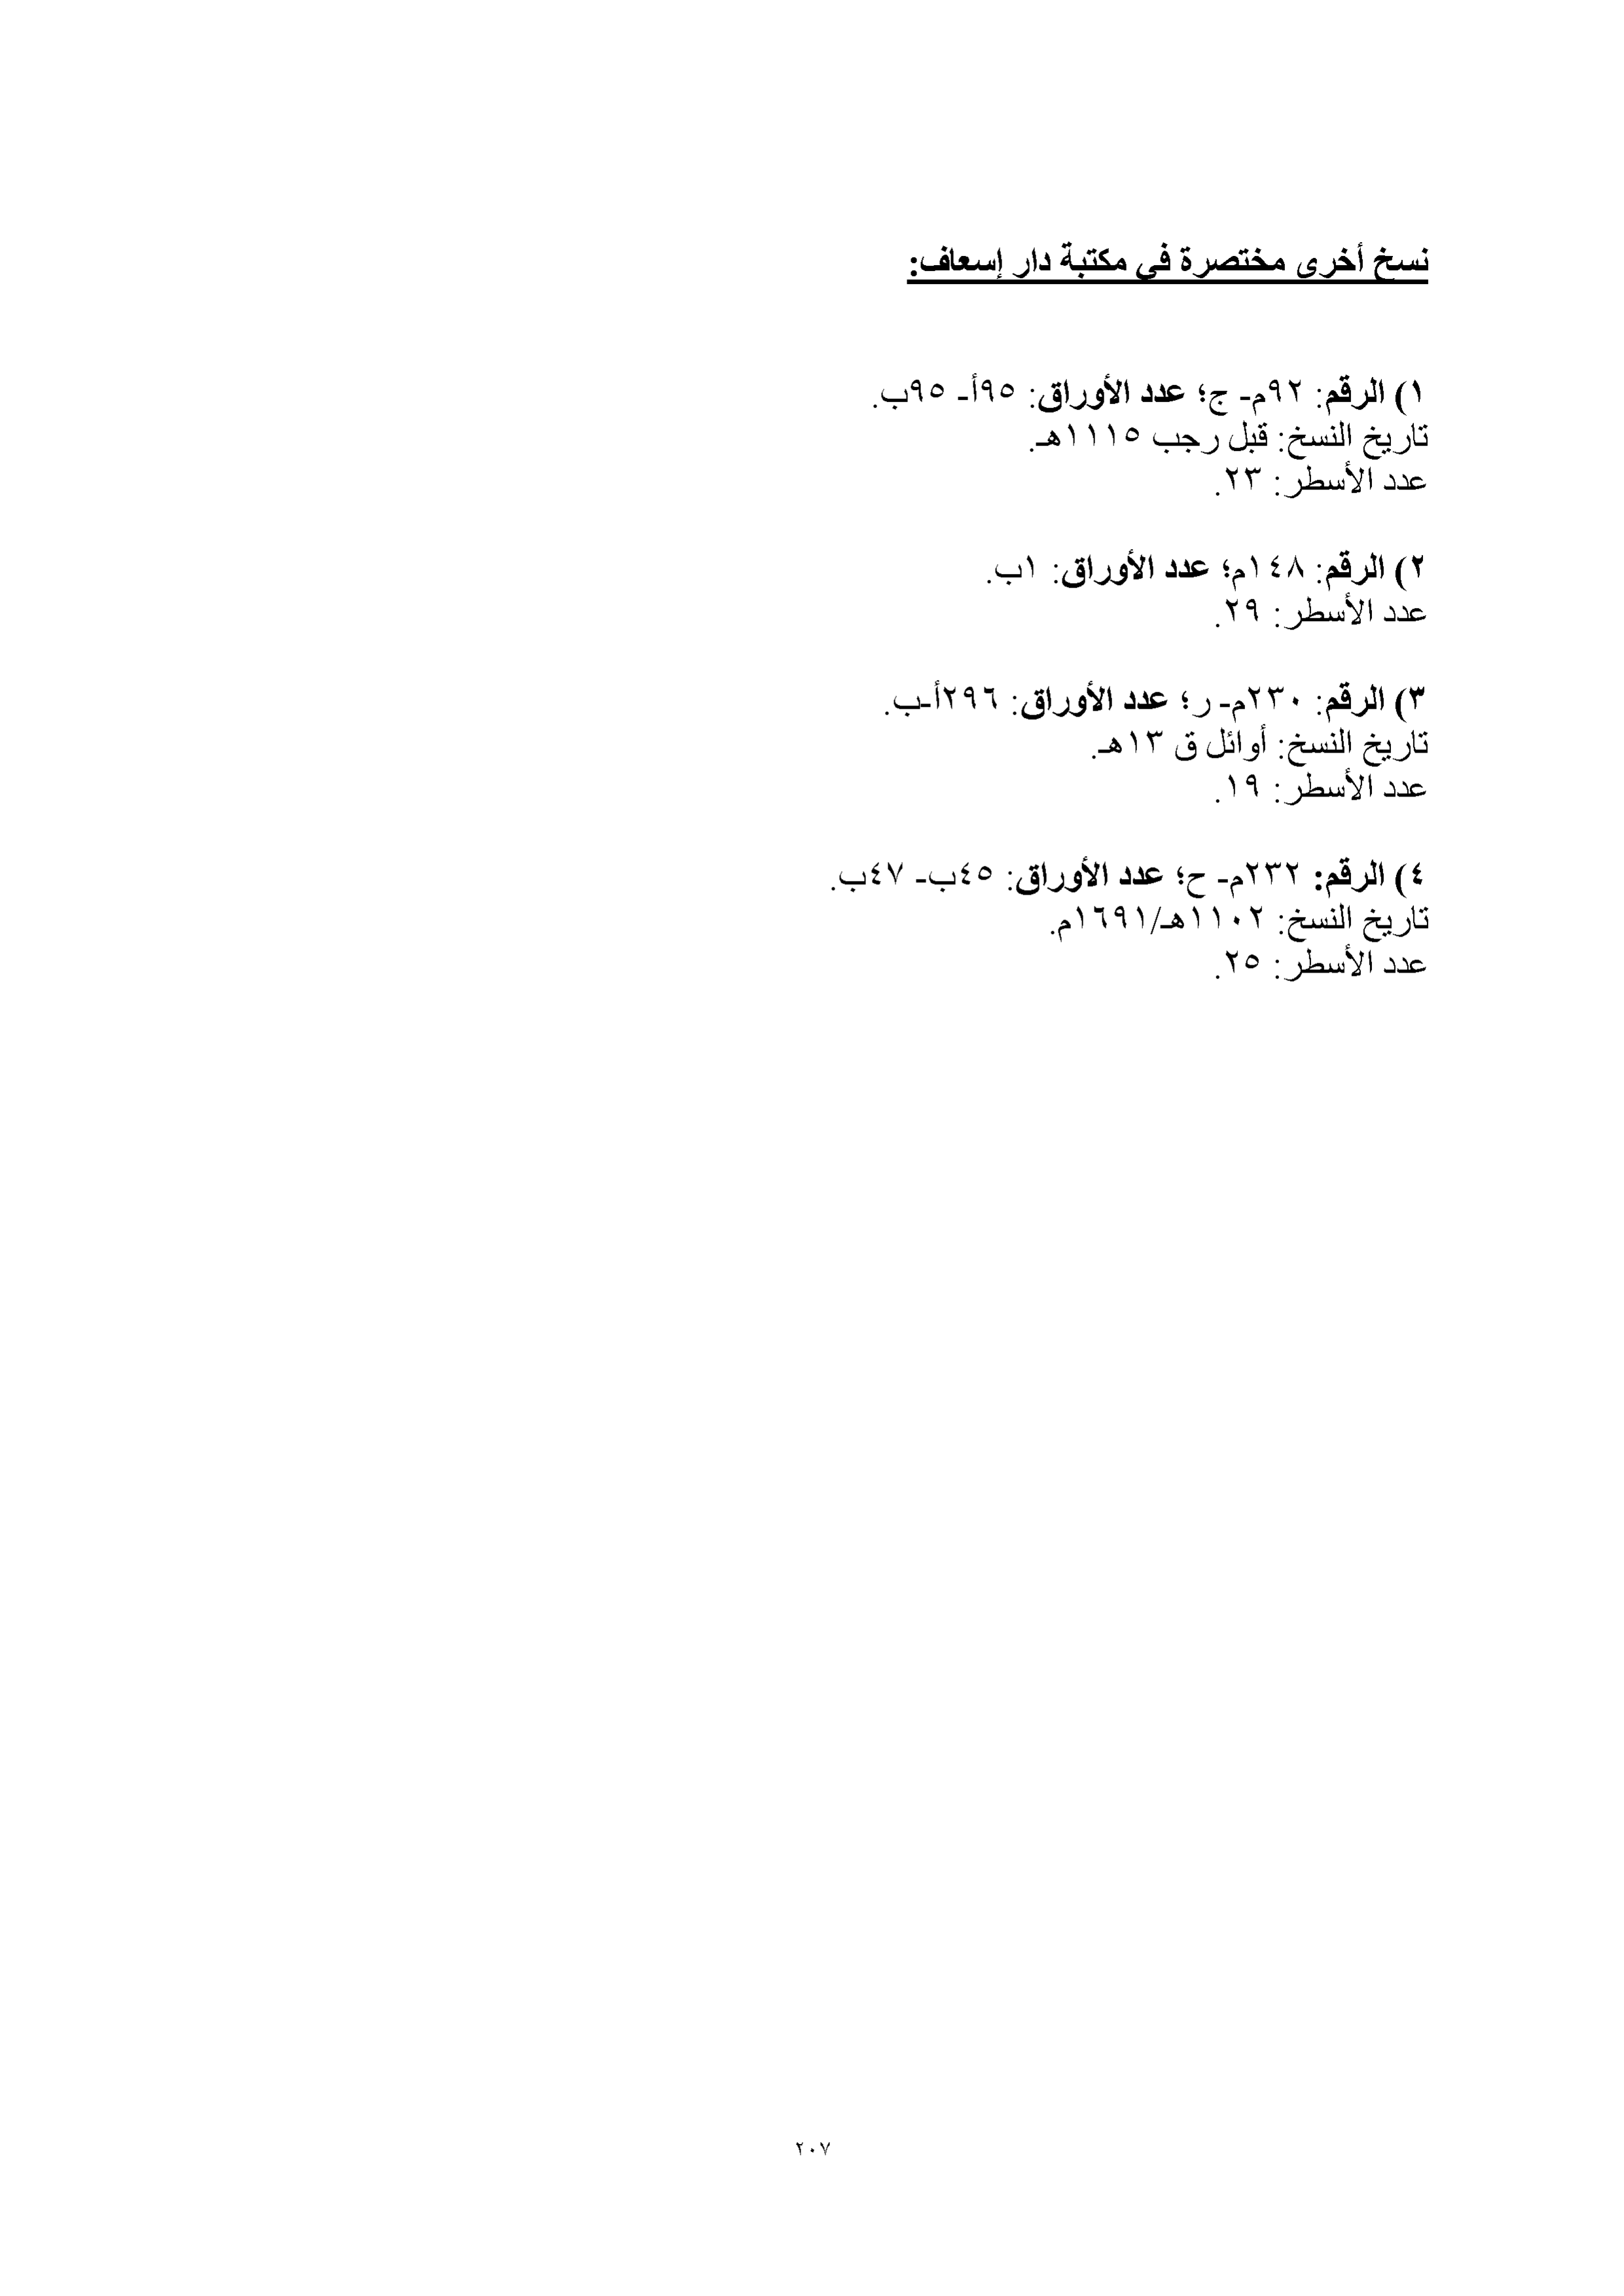 نسخ أخرى مختصرة في مكتبة دار إسعاف:
١) الرقم: ٩٢م- ج؛ عدد الأوراق: ٩٥أ- ٩٥ب.
تاريخ النسخ: قبل رجب ١١١٥هـ.
عدد الأسطر: ٢٣.
٢) الرقم: ١٤٨م؛ عدد الأوراق: ١ب.
عدد الأسطر: ٢٩.
٣) الرقم: ٢٣٠م- ر؛ عدد الأوراق: ٢٩٦أ-ب.
تاريخ النسخ: أوائل ق ١٣هـ.
عدد الأسطر: ١٩.
٤) الرقم: ٢٣٢م- ح؛ عدد الأوراق: ٤٥ب- ٤٧ب.
تاريخ النسخ: ١١٠٢هـ/١٦٩١م.
عدد الأسطر: ٢٥.
٢٠٧